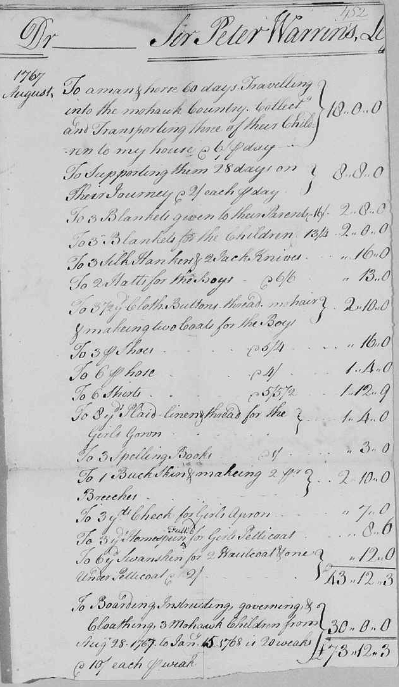 452
Dr Sir Peter Warrin's, Le
1767
August,
To a man & horse 60 days Travelling
into the mohawk Country. Collect
and Transporting three of their Child-
ren to my house @ 6/ ⅌ day 18..0..0
To Supporting them 28 days on
Their Journey @ 2/ each ⅌ day 8..8..0
To 3 Blankets given to their Parents 16/. 2..8..0
To 3 Blankets for the Children 13/4 2..0..0
To 3 Silk Hanker. & 2 Jack Knives " 16..0
To 2 Hatts for the Boys @ 6/6 " 13..0
Cloth Buttons thread mohair
& makeing two Coats for the Boys 2..10..0
To 3 pr Shoes @ 5/4 " 16..0
To 6 pr hose @ 4/ 1..4..0
To 6 Shirts @ 5/5½ 1..12..9
To 8 yds Plaid linen & thread for the
Girls Gown 1..4..0
To 3 Spelling Books @ 1/ " 3..0
To 1 Buck Skin & makeing 2 pr
Breeches 2..10..0
To 3 yds Check for Girls Apron " 7..0
To 3 yds Homespun for Girls Petticoat " 8..6
To 6 yds Swanskin for 2 Waistcoat & one
Under Petticoat @ 2/ " 12..0
£43..12..3
To Boarding, Instructing, governing, &
Cloathing, 3 Mohawk Children from
Augt 28. 1767 to Jany 15 1768 is 20 weaks
@ 10/ each ⅌ weak 30..0..0
£73..12..3